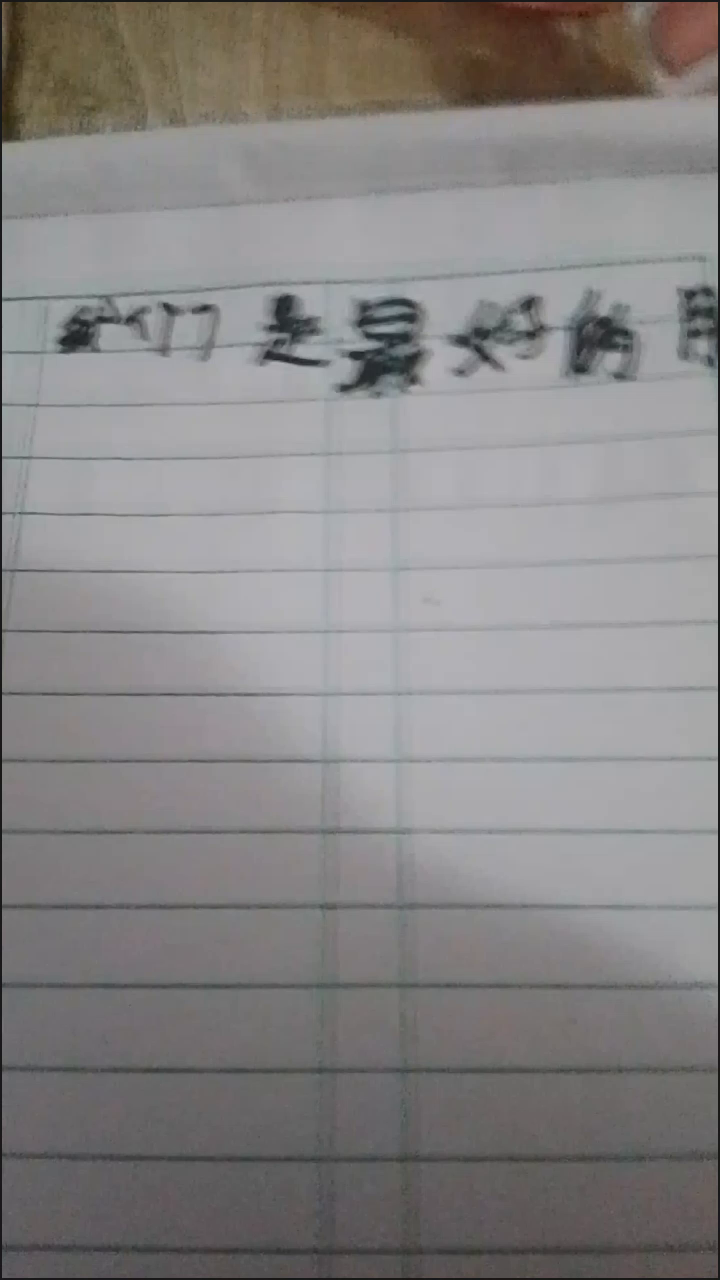 我们是最好的